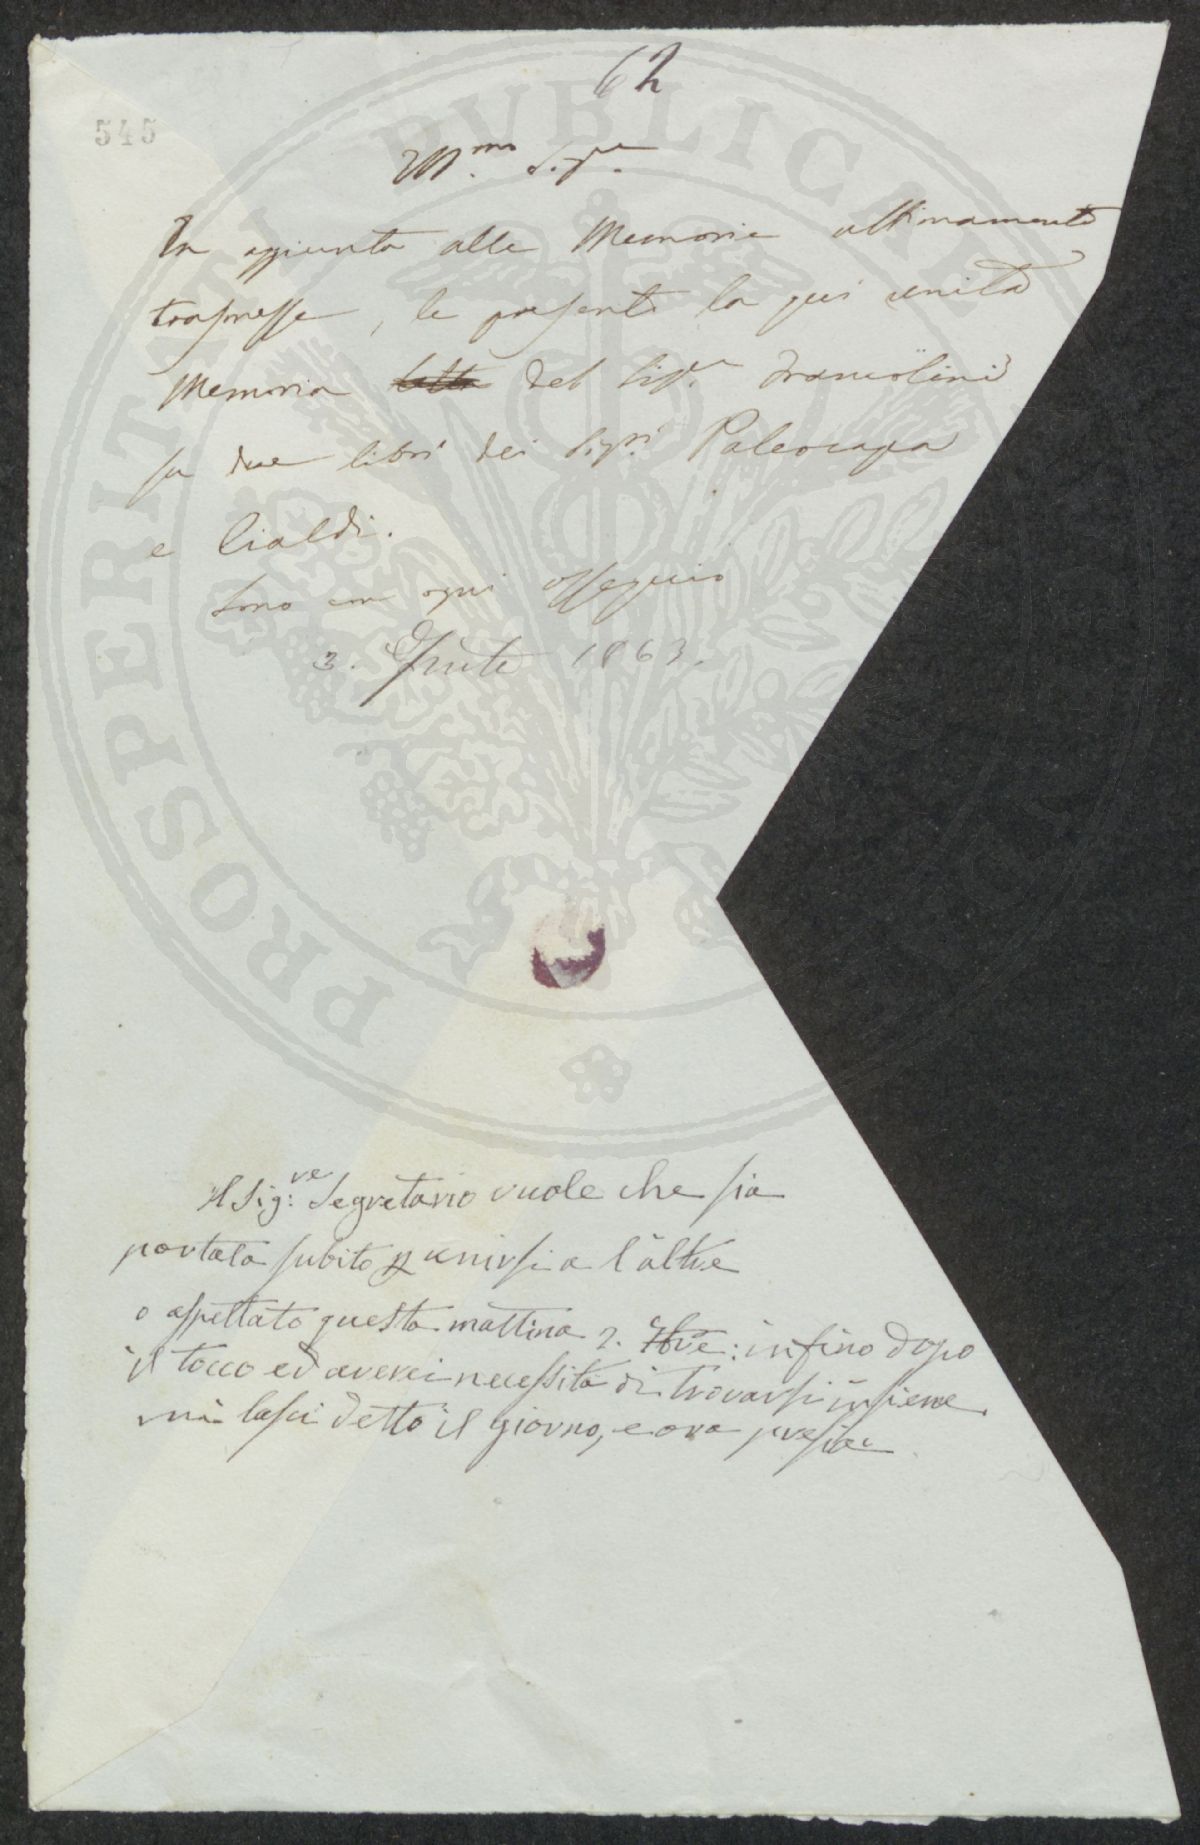 62
545
Ill.mo Sig.re
In aggiunta alle Memorie ultimamente
trasmesse, le presento la qui unita
Memoria letta del Sig.r Francolini
su due libri dei Sig.ri Paleocapa
e Cialdi.
Sono con ogni ossequio
3. 1863.
Il Sig:re Segretario vuole che sia
portata subito p unirsi a l'altre
o aspettato questa mattina 2. Ore: infino dopo
il tocco ed averci necessità di trovarsi insieme
mi lasci detto il giorno, e ora presia
PROSPERITATI PVBLICAE